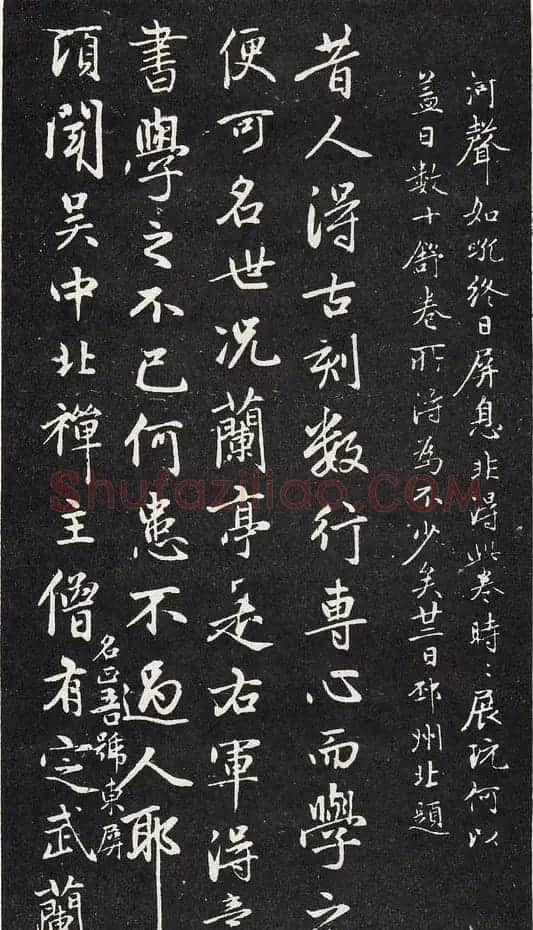 河聲如吼終日屏息非得此卷時:展玩何以
盖日數十舒卷所得為不少矣廿二日邳州北題
昔人得古刻數行專心而學之
便可名世况蘭亭是右軍得意
書學之不已何患不過人耶
頃聞吴中北禪主僧有定武蘭
名正吾號東屏
Shufaziliao.COM